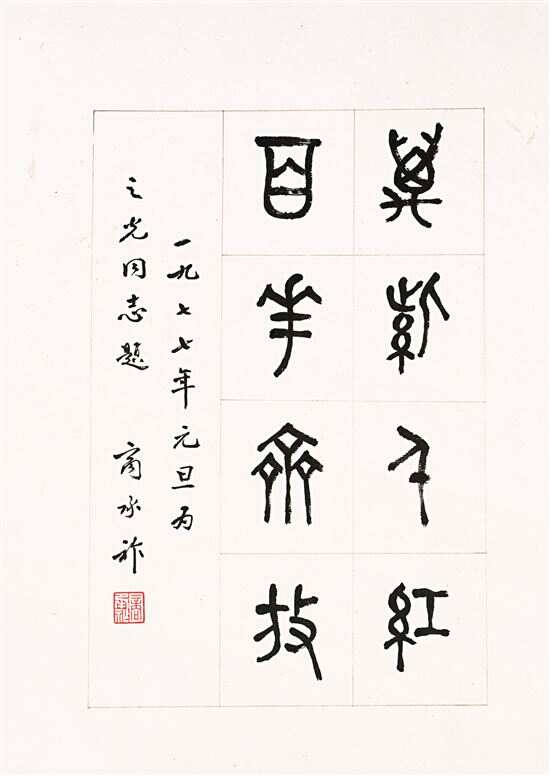 萬紫千紅
百花齊放
一九七七年元旦为
之光同志題 商承祚